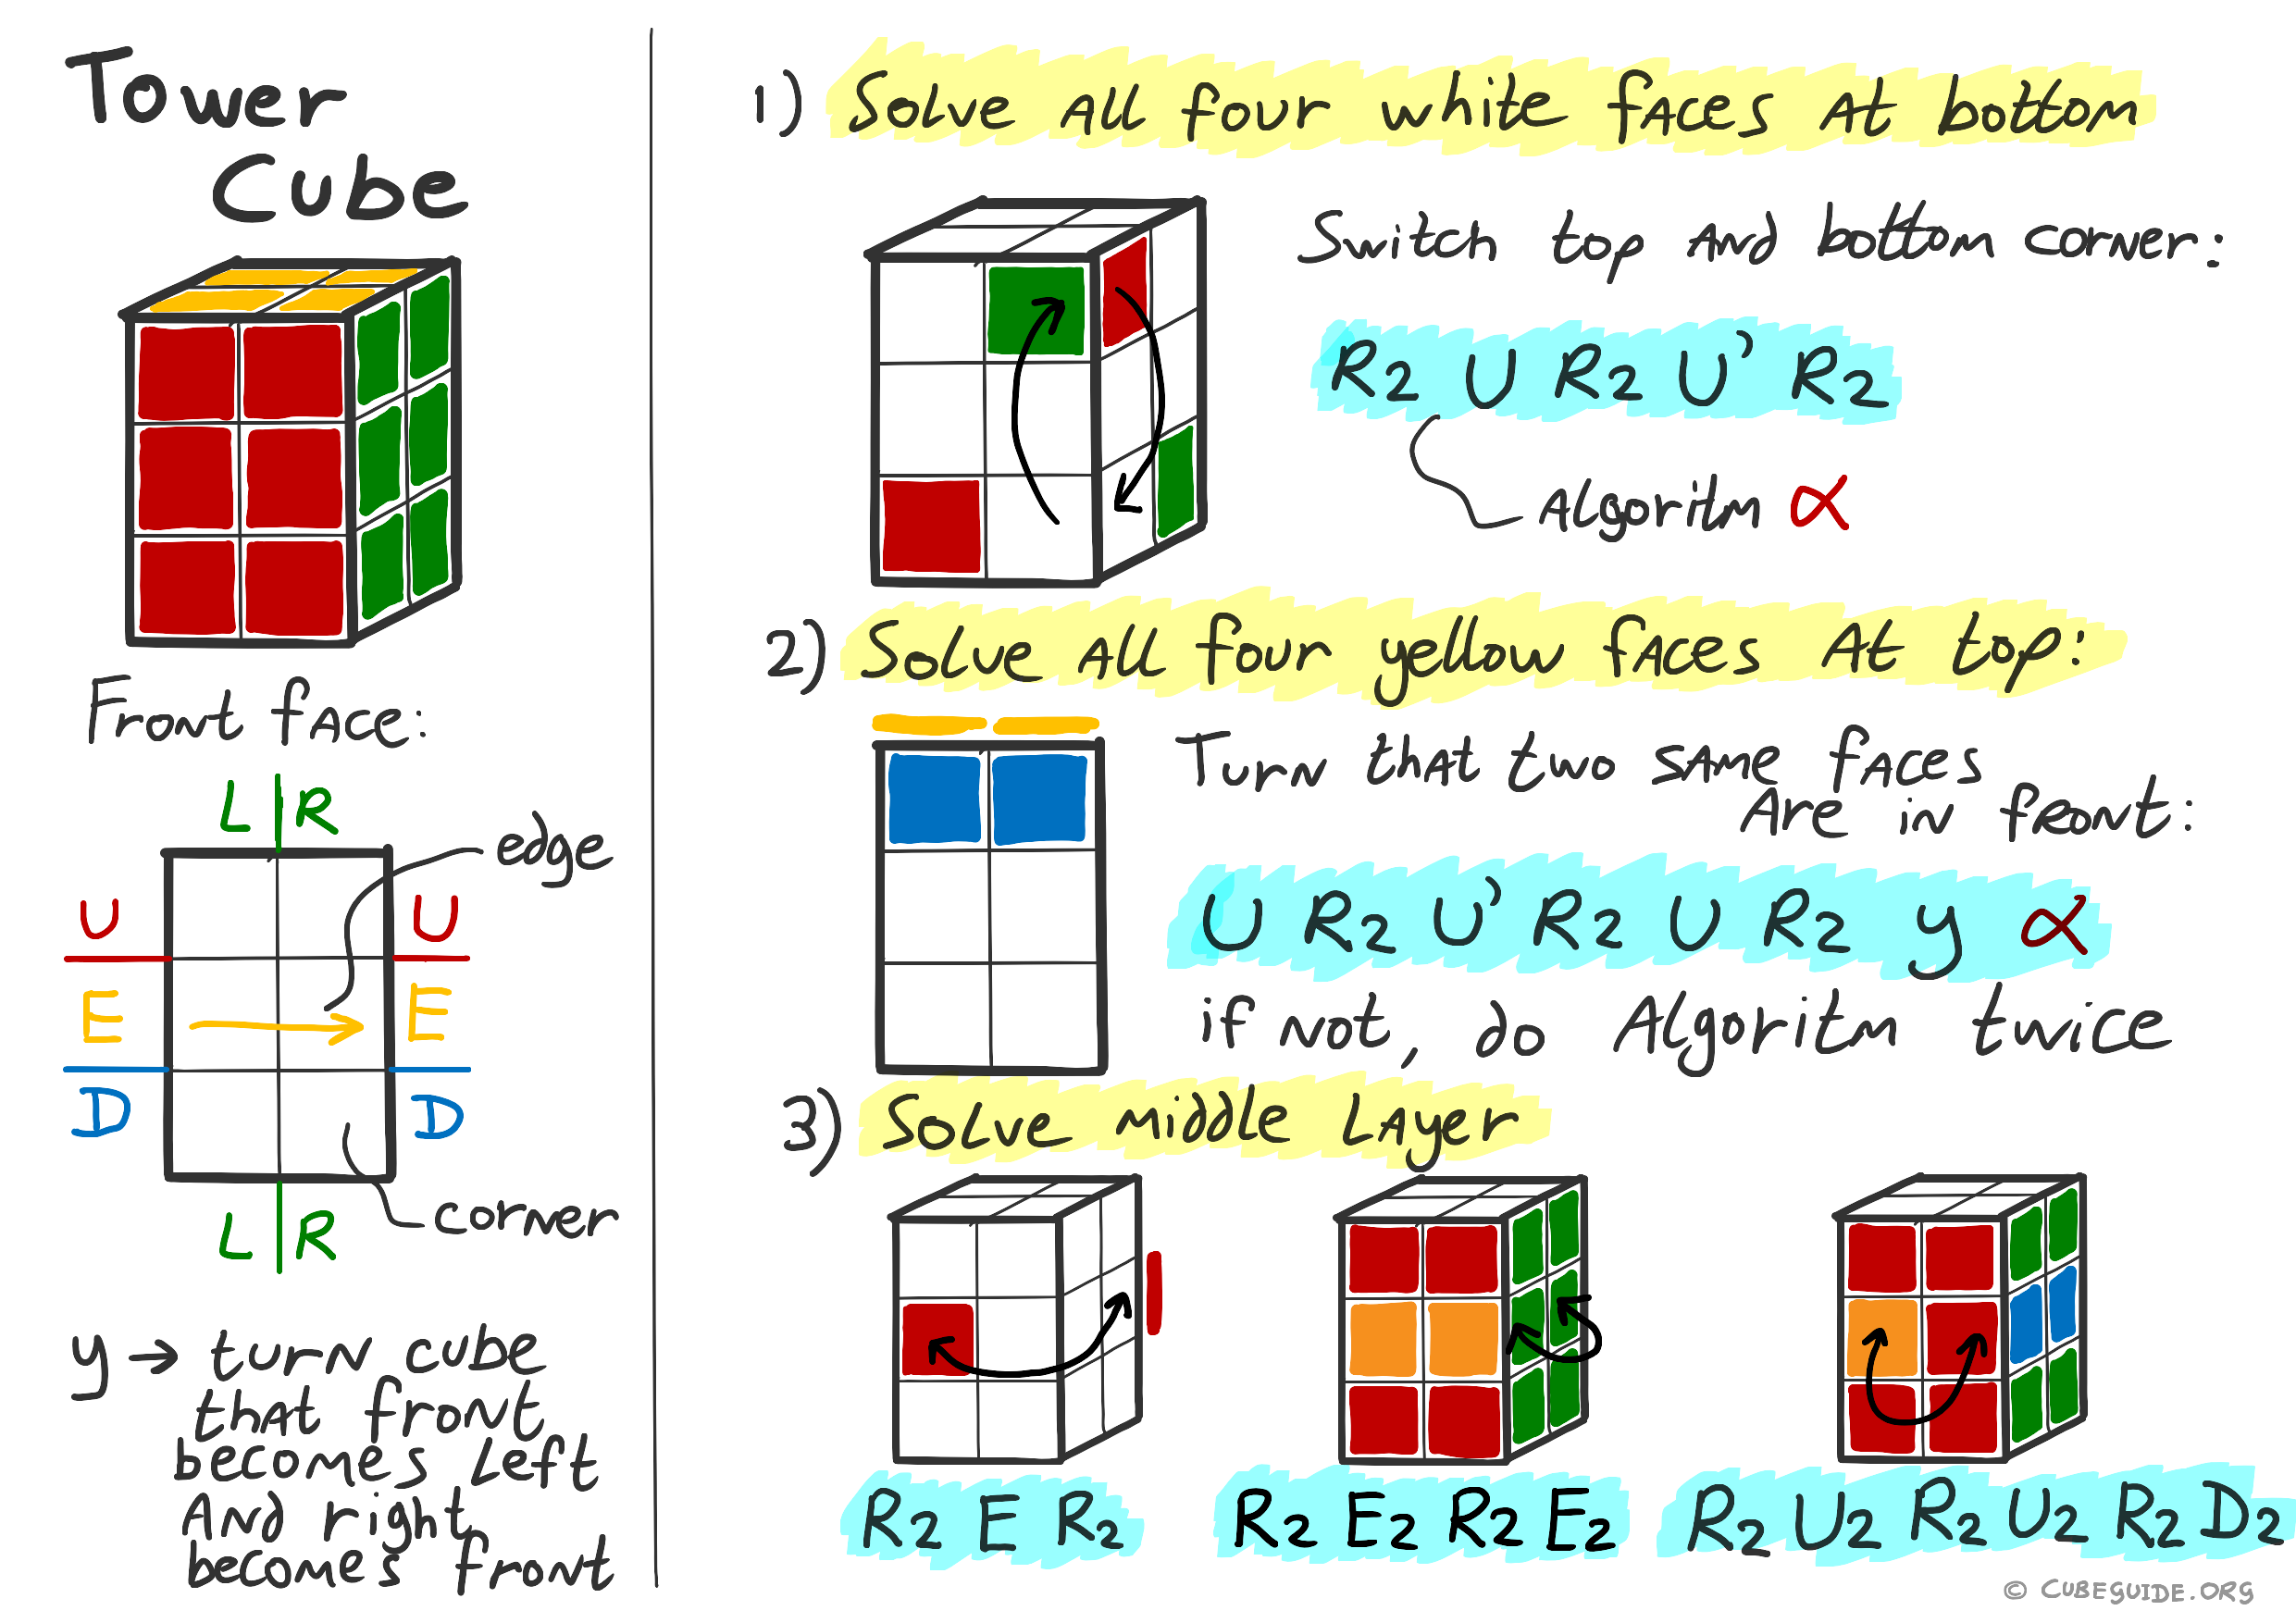 Tower
Cube
Front face:
L R
edge
U U
E E
D D
L R
corner
y → turn cube
that front
becomes left
and right
becomes front
1) Solve all four white faces at bottom
Switch top and bottom corner:
R2 U R2 U' R2
Algoritm α
2) Solve all four yellow faces at top:
Turn that two same faces
are in front:
U R2 U' R2 U R2 y α
if not, do Algoritm twice
3) Solve middle layer
R2 E R2
R2 E2 R2 E2
R2 U2 R2 U2 R2 D2
© CUBEGUIDE.ORG